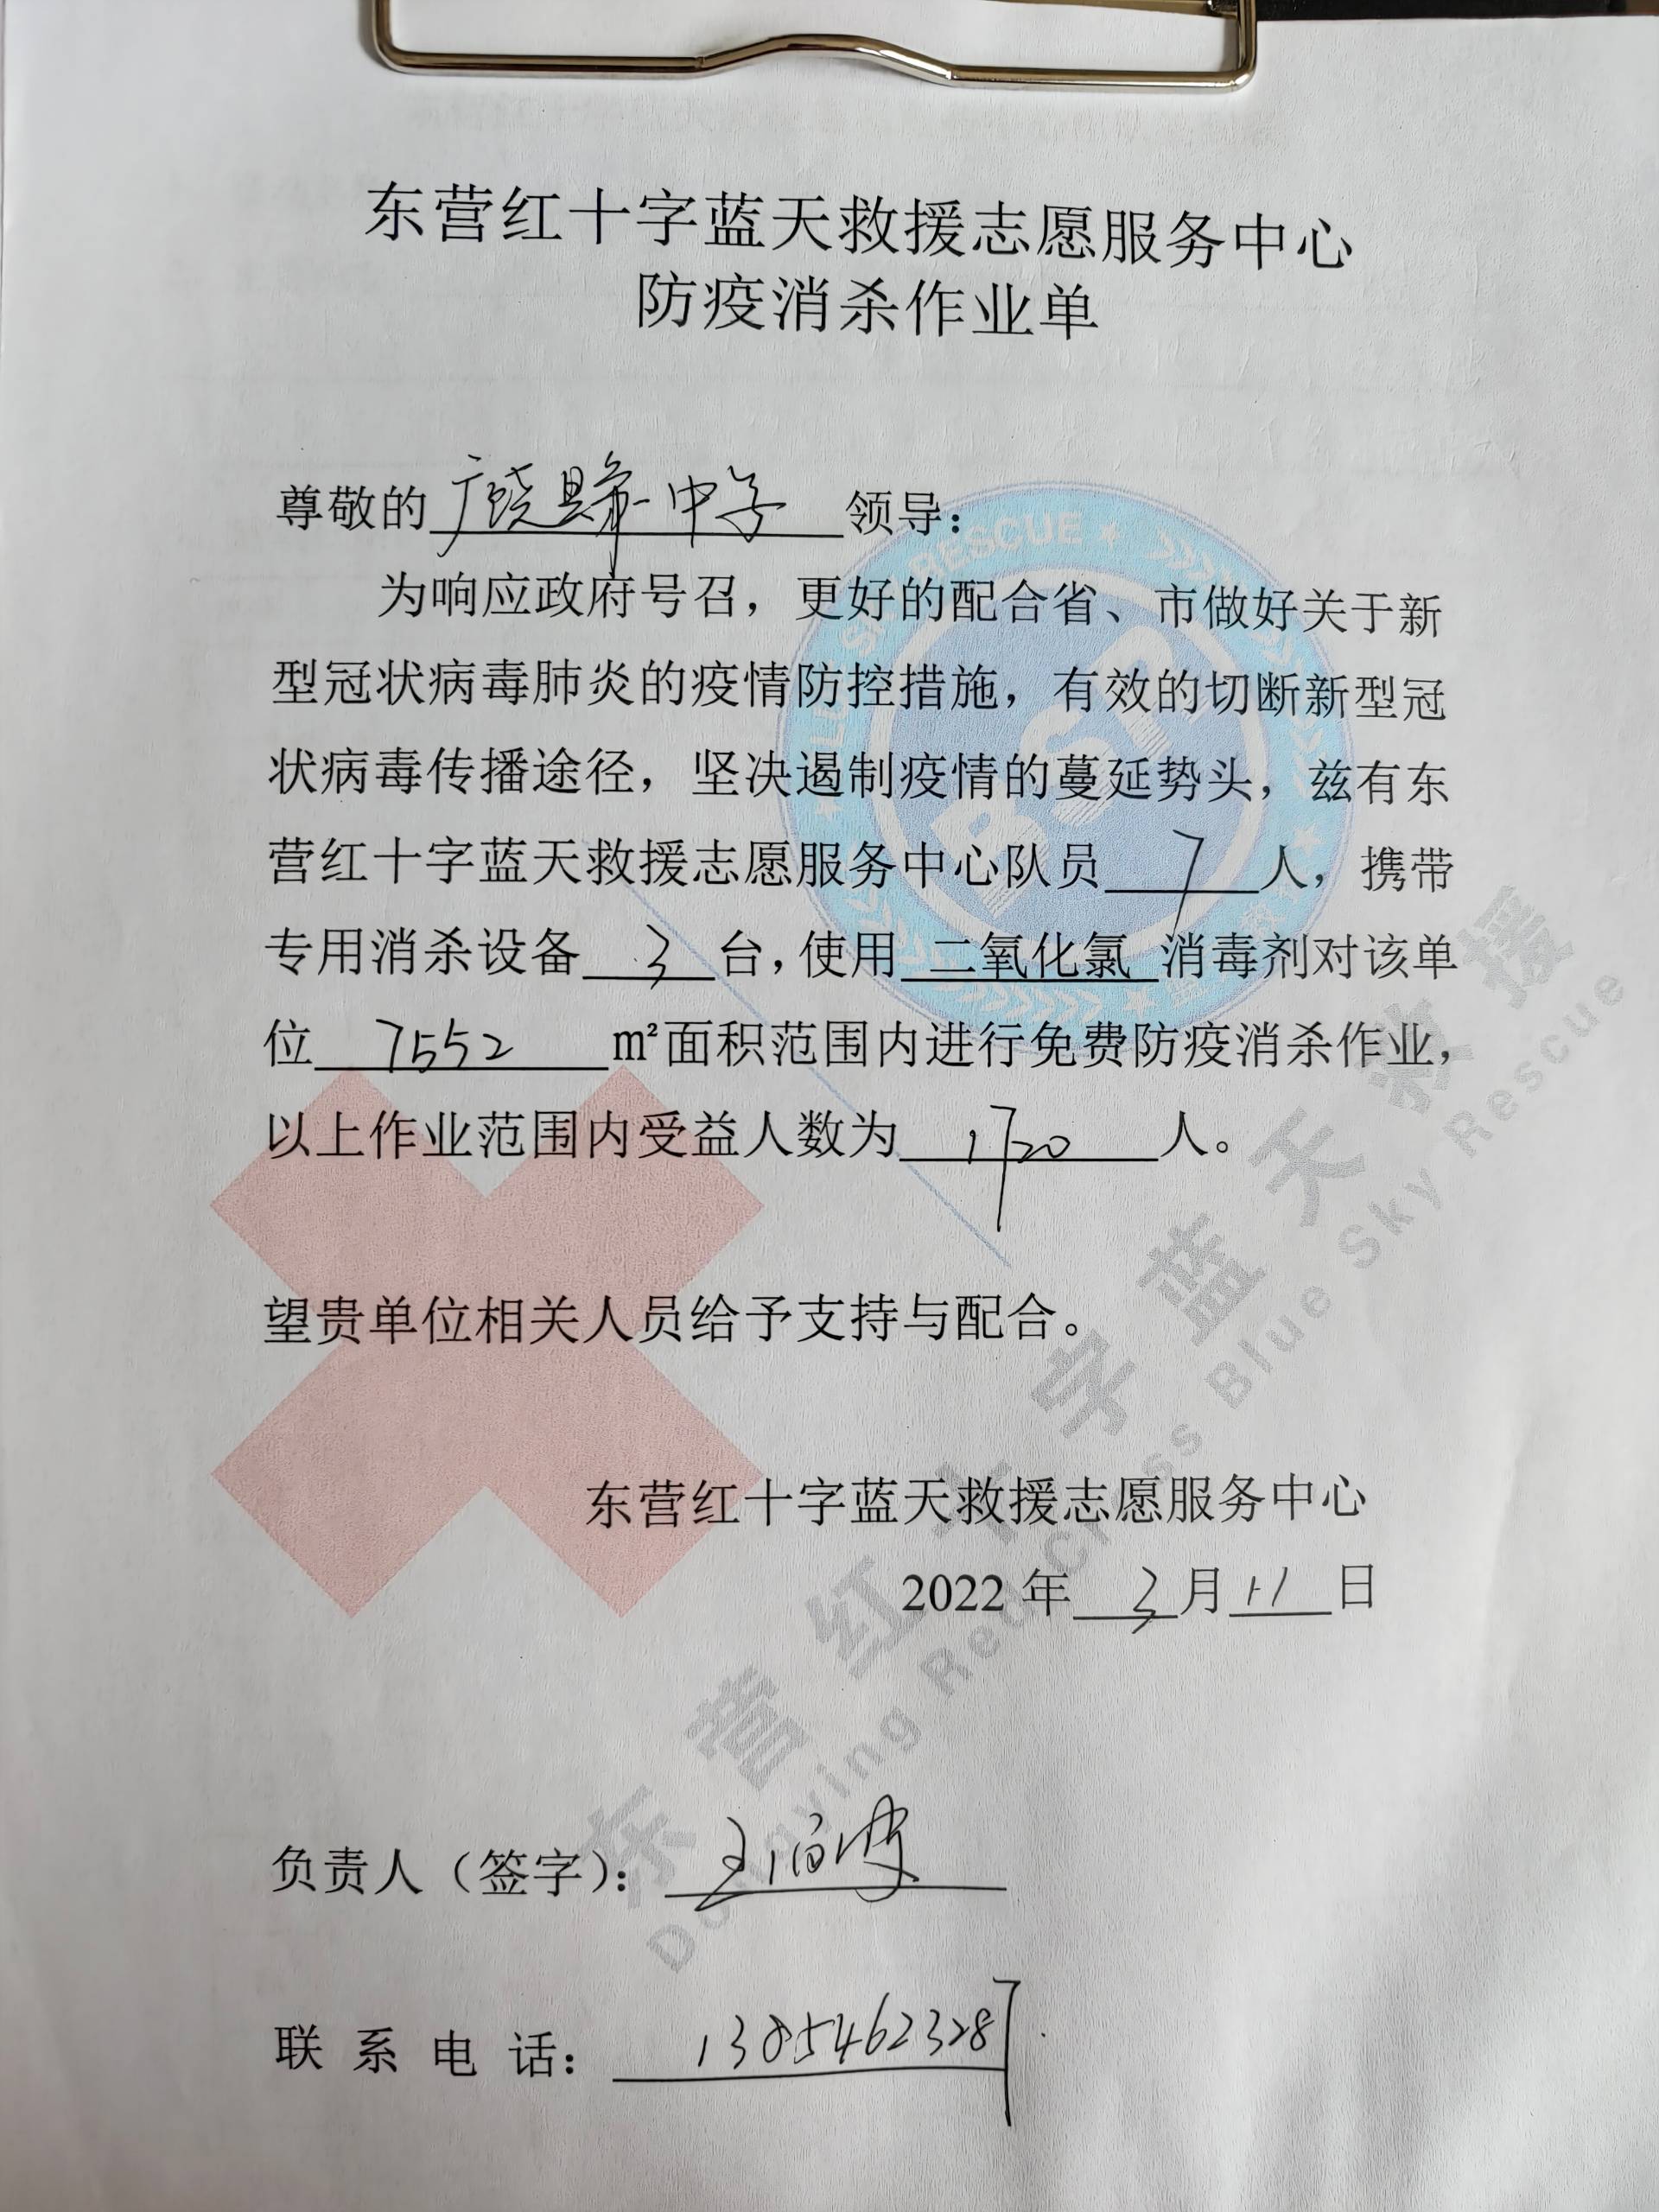 东营红十字蓝天救援志愿服务中心
防疫消杀作业单
尊敬的 广饶县第一中学 领导：
为响应政府号召，更好的配合省、市做好关于新
型冠状病毒肺炎的疫情防控措施，有效的切断新型冠
状病毒传播途径，坚决遏制疫情的蔓延势头，兹有东
营红十字蓝天救援志愿服务中心队员 7 人，携带
专用消杀设备 3 台，使用 二氧化氯 消毒剂对该单
位 7552 m²面积范围内进行免费防疫消杀作业，
以上作业范围内受益人数为 1720 人。
望贵单位相关人员给予支持与配合。
东营红十字蓝天救援志愿服务中心
2022 年 3 月 11 日
负责人（签字）： 王伯波
联 系 电 话： 13854623287
RESCUE
BSR
东营红十字蓝天救援
Dongying Red Cross Blue Sky Rescue